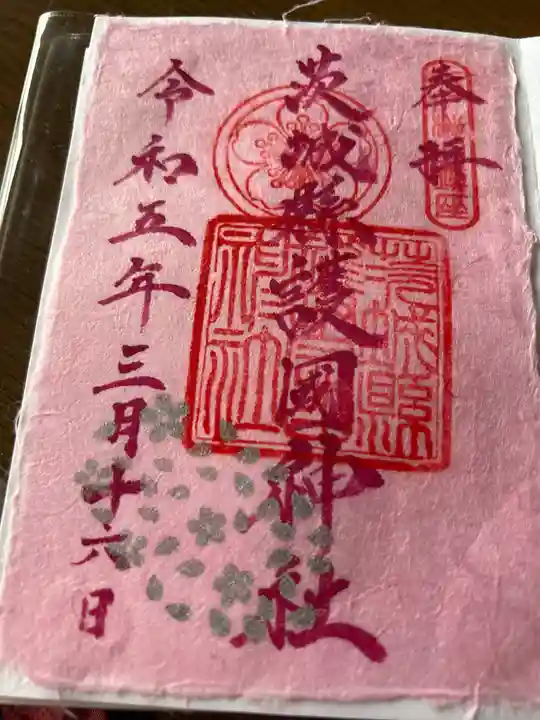 奉拝
茨城縣護國神社
令和五年三月十六日
茨城縣
護國
神社